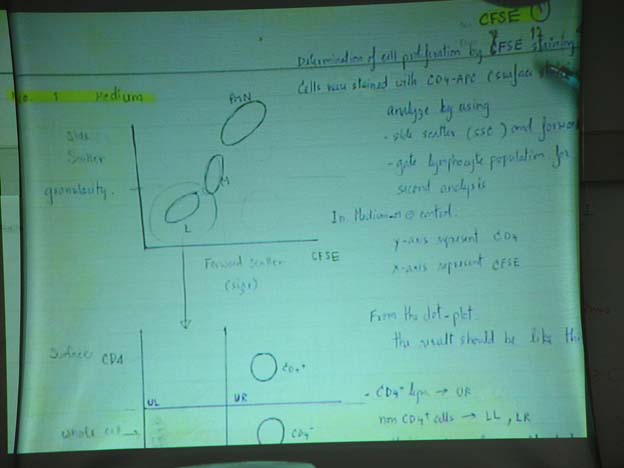 CFSE 1
Determination of cell proliferation by CFSE staining
Cells were stained with CD4-APC (surface
No. 1 Medium
PMN
analyze by using
Side
Scatter
- side scatter (SSC) and forward
granularity.
M
- gate lymphocyte population for
second analysis
L
In Medium → ⊖ control.
y-axis represent CD4
Forward scatter CFSE
(size)
x-axis represent CFSE
From the dot-plot.
the result should be like this
Surface CD4
CD4+
UL UR
- CD4+ lym → UR
non CD4+ calls → LL, LR
whole cell →
CD4-